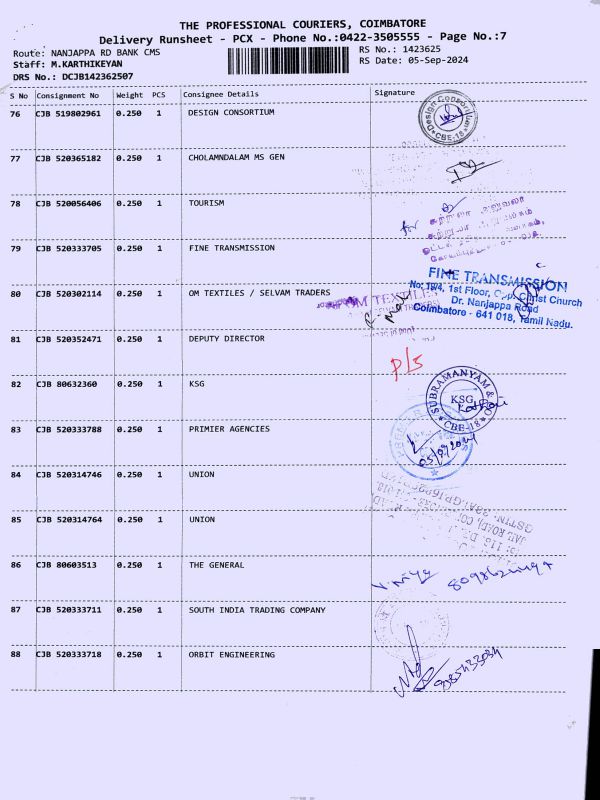 THE PROFESSIONAL COURIERS, COIMBATORE
Delivery Runsheet - PCX - Phone No.:0422-3505555 - Page No.:7
Route: NANJAPPA RD BANK CMS
RS No.: 1423625
Staff: M.KARTHIKEYAN
RS Date: 05-Sep-2024
DRS No.: DCJB142362507
S No Consignment No Weight PCS Consignee Details Signature
76 CJB 519802961 0.250 1 DESIGN CONSORTIUM
Design Consortium
CBE-18
77 CJB 520365182 0.250 1 CHOLAMNDALAM MS GEN
78 CJB 520056406 0.250 1 TOURISM
79 CJB 520333705 0.250 1 FINE TRANSMISSION
FINE TRANSMISSION
No: 19/4, 1st Floor, Opp. Christ Church
Dr. Nanjappa Road
Coimbatore - 641 018, Tamil Nadu.
80 CJB 520302114 0.250 1 OM TEXTILES / SELVAM TRADERS
OM TEXTILES
81 CJB 520352471 0.250 1 DEPUTY DIRECTOR
P/S
82 CJB 80632360 0.250 1 KSG
SUBRAMANYAM &
KSG
CBE-18
83 CJB 520333788 0.250 1 PRIMIER AGENCIES
84 CJB 520314746 0.250 1 UNION
85 CJB 520314764 0.250 1 UNION
86 CJB 80603513 0.250 1 THE GENERAL
87 CJB 520333711 0.250 1 SOUTH INDIA TRADING COMPANY
88 CJB 520333718 0.250 1 ORBIT ENGINEERING